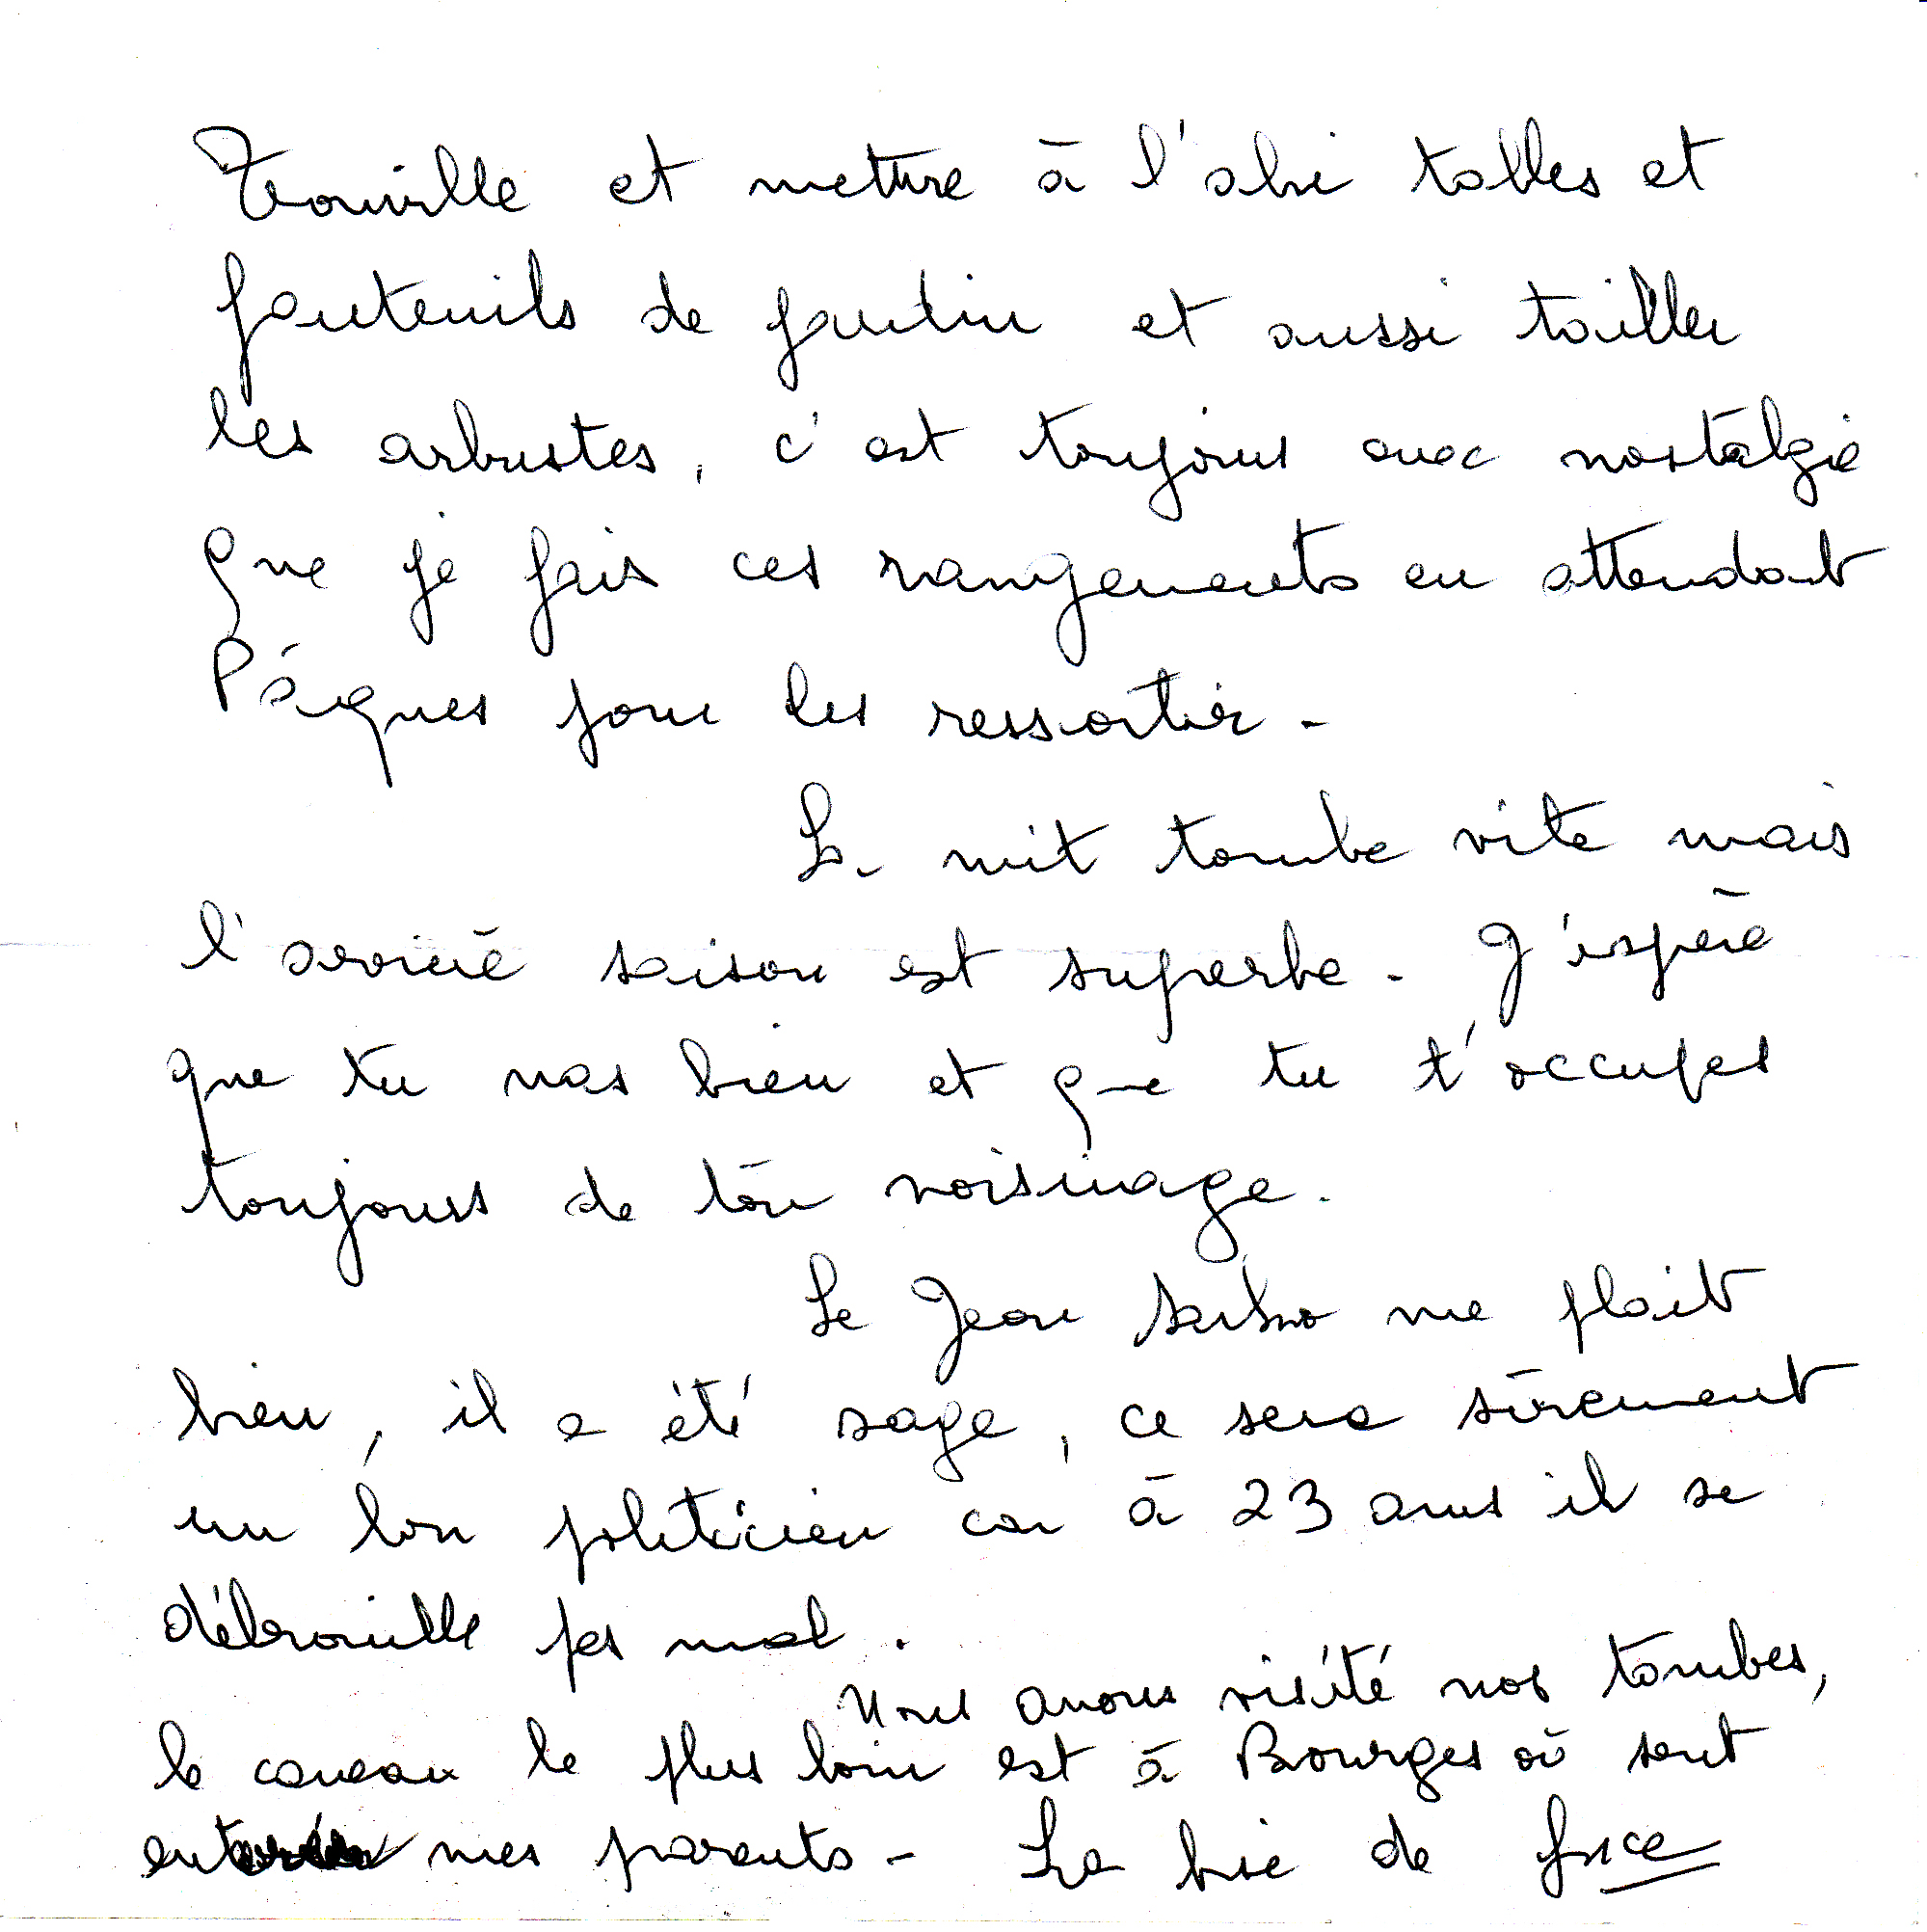 Trouville et mettre à l'abri tables et
fauteuils de jardin et aussi tailler
les arbustes, c'est toujours avec nostalgie
que je fais ces rangements en attendant
Pâques pour les ressortir -
La nuit tombe vite mais
l'arrière saison est superbe. J'espère
que tu vas bien et que tu t'occupes
toujours de ton voisinage.
Le Jean Sarko me plait
bien, il a été sage, ce sera sûrement
un bon politicien car à 23 ans il se
débrouille pas mal.
Nous avons visité nos tombes,
le caveau le plus loin est à Bourges où sont
mes parents - La bise de